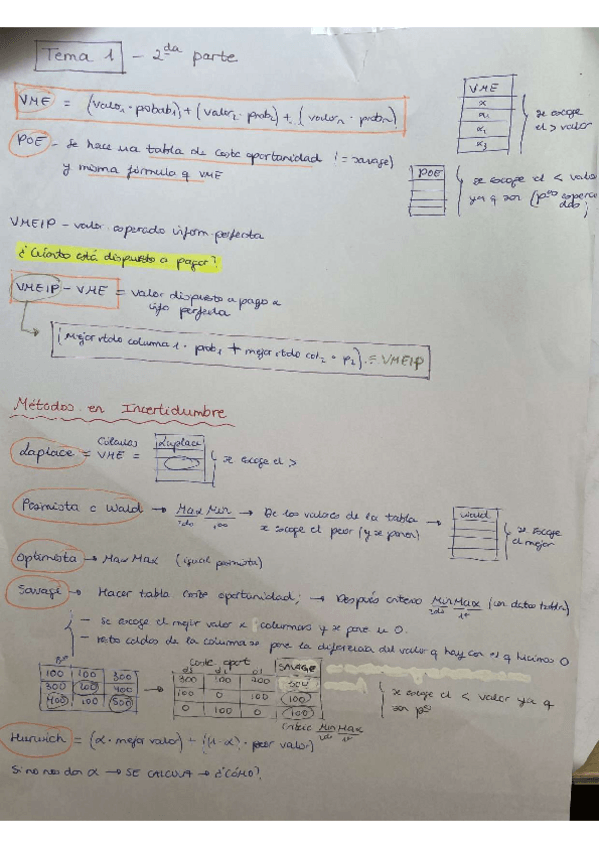 Tema 1 - 2da parte
VME = (valor1 · probab1) + (valor2 · prob2) + (valorn · probn)
VME
x
x1
x1
x3
se escoge
el > valor
POE - Se hace una tabla de coste oportunidad (= savage)
y misma fórmula q VME
POE
se escope el < valo
ya q son
VMEIP - valor esperado inform. perfecta
¿Cuánto está dispuesto a pagar?
VMEIP - VME = valor dispuesto a pago x
info perfecta
(Mejor rtdo columna 1 · prob1 + mejor rtdo col2 · p2) = VMEIP
Métodos en Incertidumbre
Laplace = Cálculos VME =
Laplace
se escoge el >
Pesimista o Wald → Max Min → De los valores de la tabla →
2do 1ro
se escoge el peor (y se ponen)
Wald
se escoge
el mejor
Optimista → Max Max (igual pesimista)
Savage → Hacer tabla coste oportunidad; → Después criterio MinMax (en datos tabla)
2do 1º
- se escoge el mejor valor x columnas y se pone un 0.
- resto celdas de la columna se pone la diferencia del valor q hay con el q hicimos 0
Bº
100 100 300
300 200 400
400 100 500
→
Coste oport
e1 d1 o1 SAVAGE
300 100 200 300
100 0 100 100
0 100 0 100
se escoge el < valor ya q
son
Criterio MinMax
2do 1º
Hurwich = (α · mejor valor) + (1-α) · peor valor)
Si no nos dan α → SE CALCULA → ¿CÓMO?